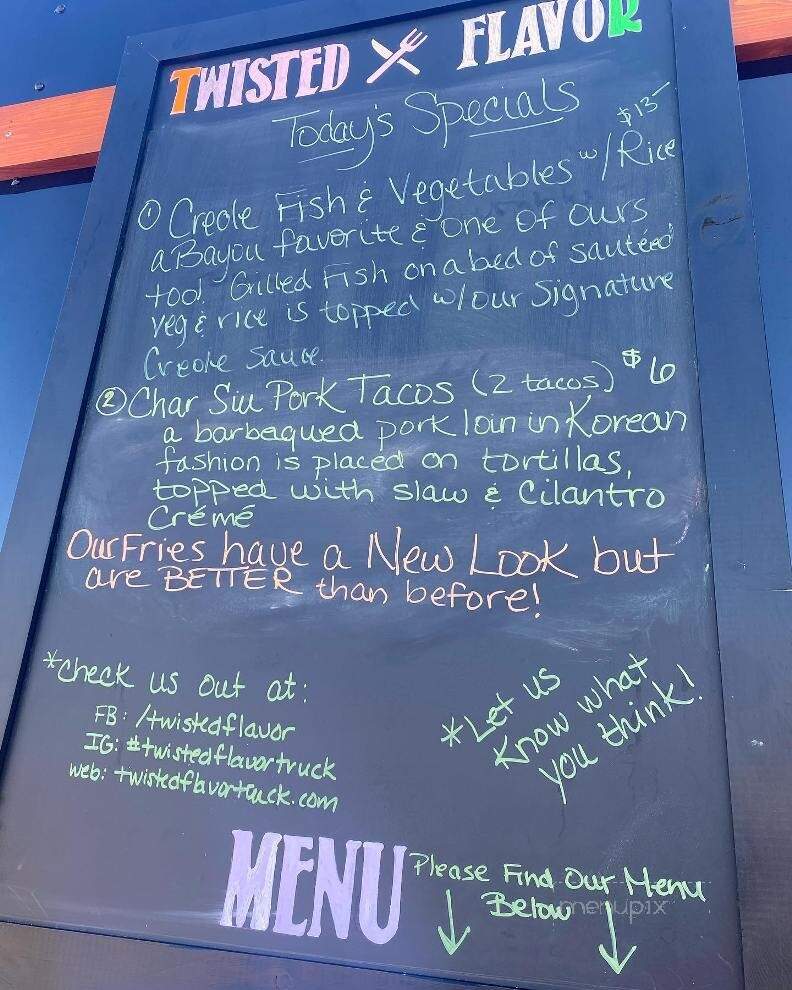 TWISTED FLAVOR
Today's Specials
$13
① Creole Fish & Vegetables w/Rice
a Bayou favorite & one of ours
too! Grilled Fish on a bed of sautéed
veg & rice is topped w/our Signature
Creole Sauce.
② Char Siu Pork Tacos (2 tacos) $6
a barbaqued pork loin in Korean
fashion is placed on tortillas,
topped with slaw & Cilantro
Crémé
Our Fries have a New Look but
are BETTER than before!
*Check us out at:
FB: /twistedflavor
IG: #twistedflavortruck
web: twistedflavortruck.com
*Let us
Know what
you think!
MENU
Please Find Our Menu
Below
menupix